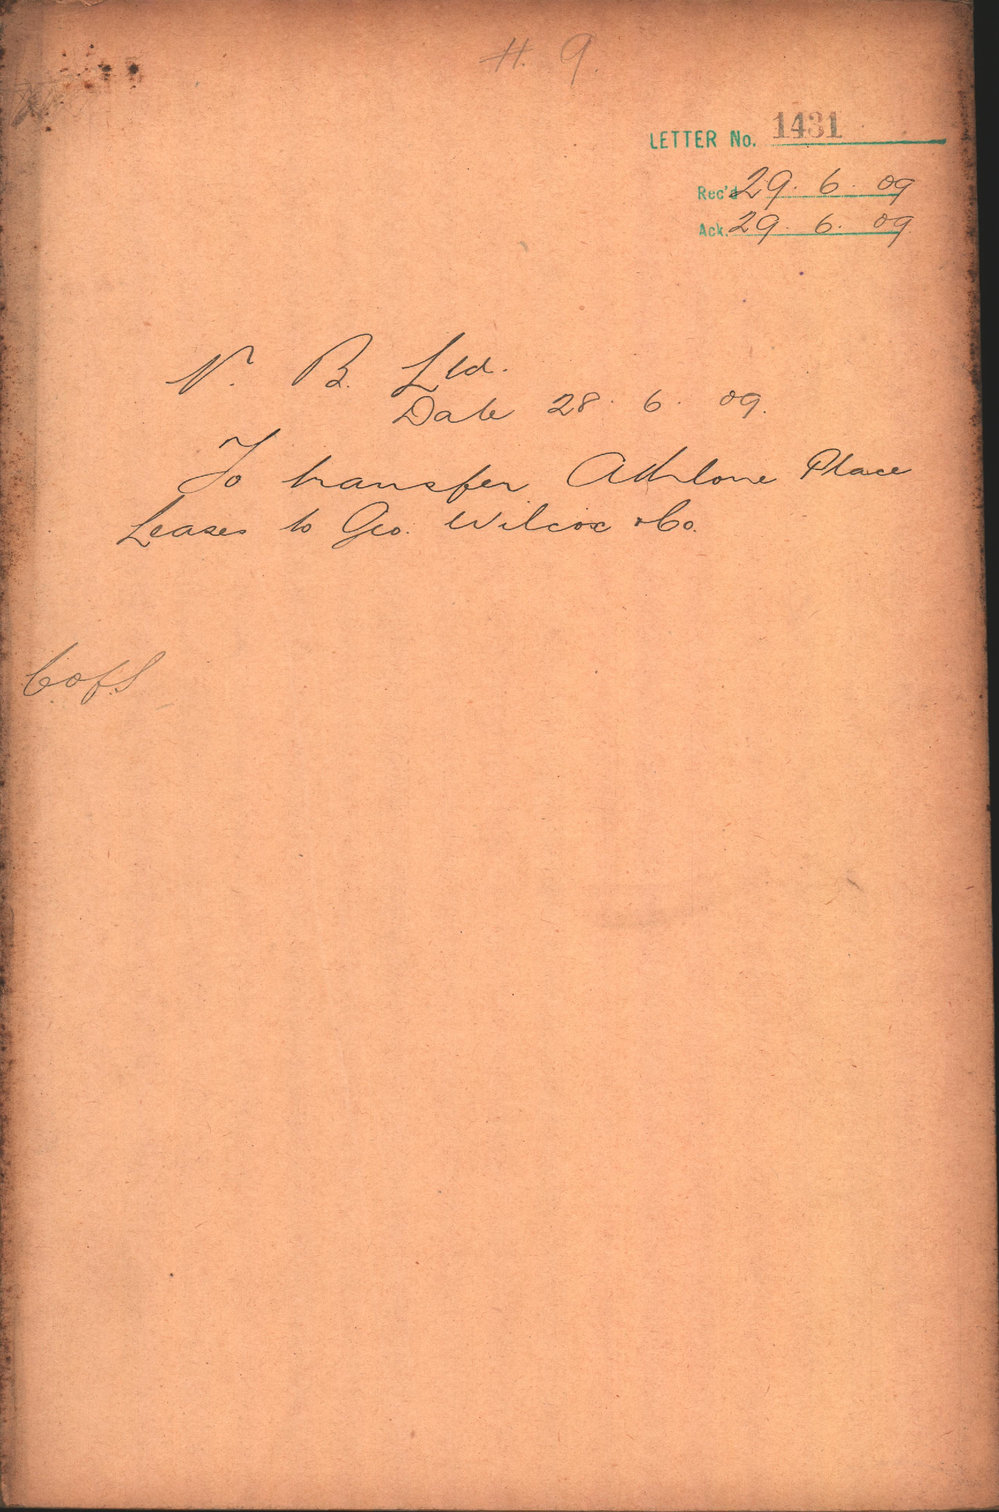 H. 9.
LETTER No. 1431
Rec'd 29. 6. 09
Ack. 29. 6. 09
N. B. Ltd.
Date 28. 6. 09.
To transfer Athlone Place
Leases to Geo. Wilcox & Co.
C of S